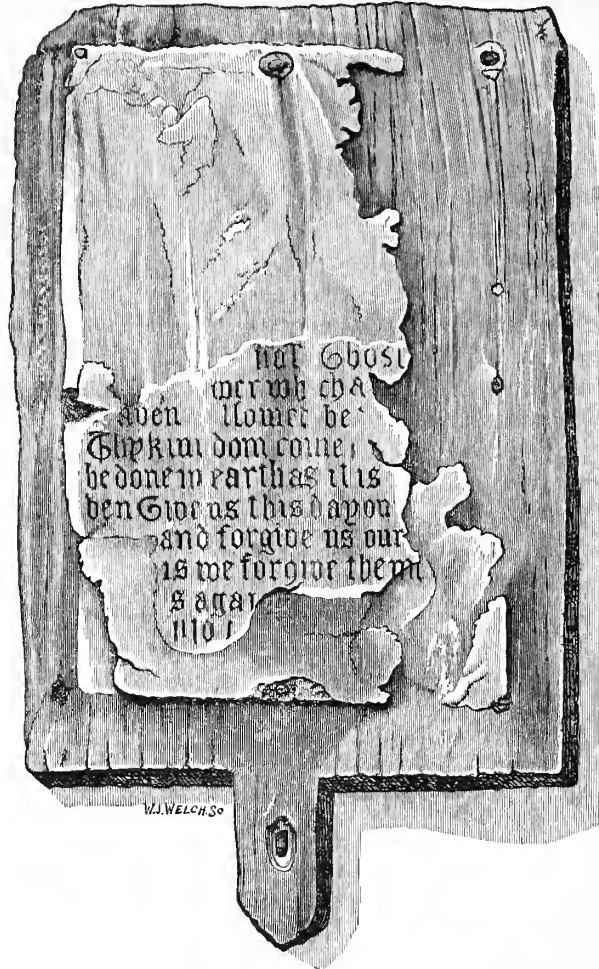 hat Ghost
wer wh ch A
aven llowed be
Thy kin dom come,
be done in earth as it is
ven Give us this day ou
and forgive us our
as we forgive them
s agai
into t
W.J.WELCH.Sc